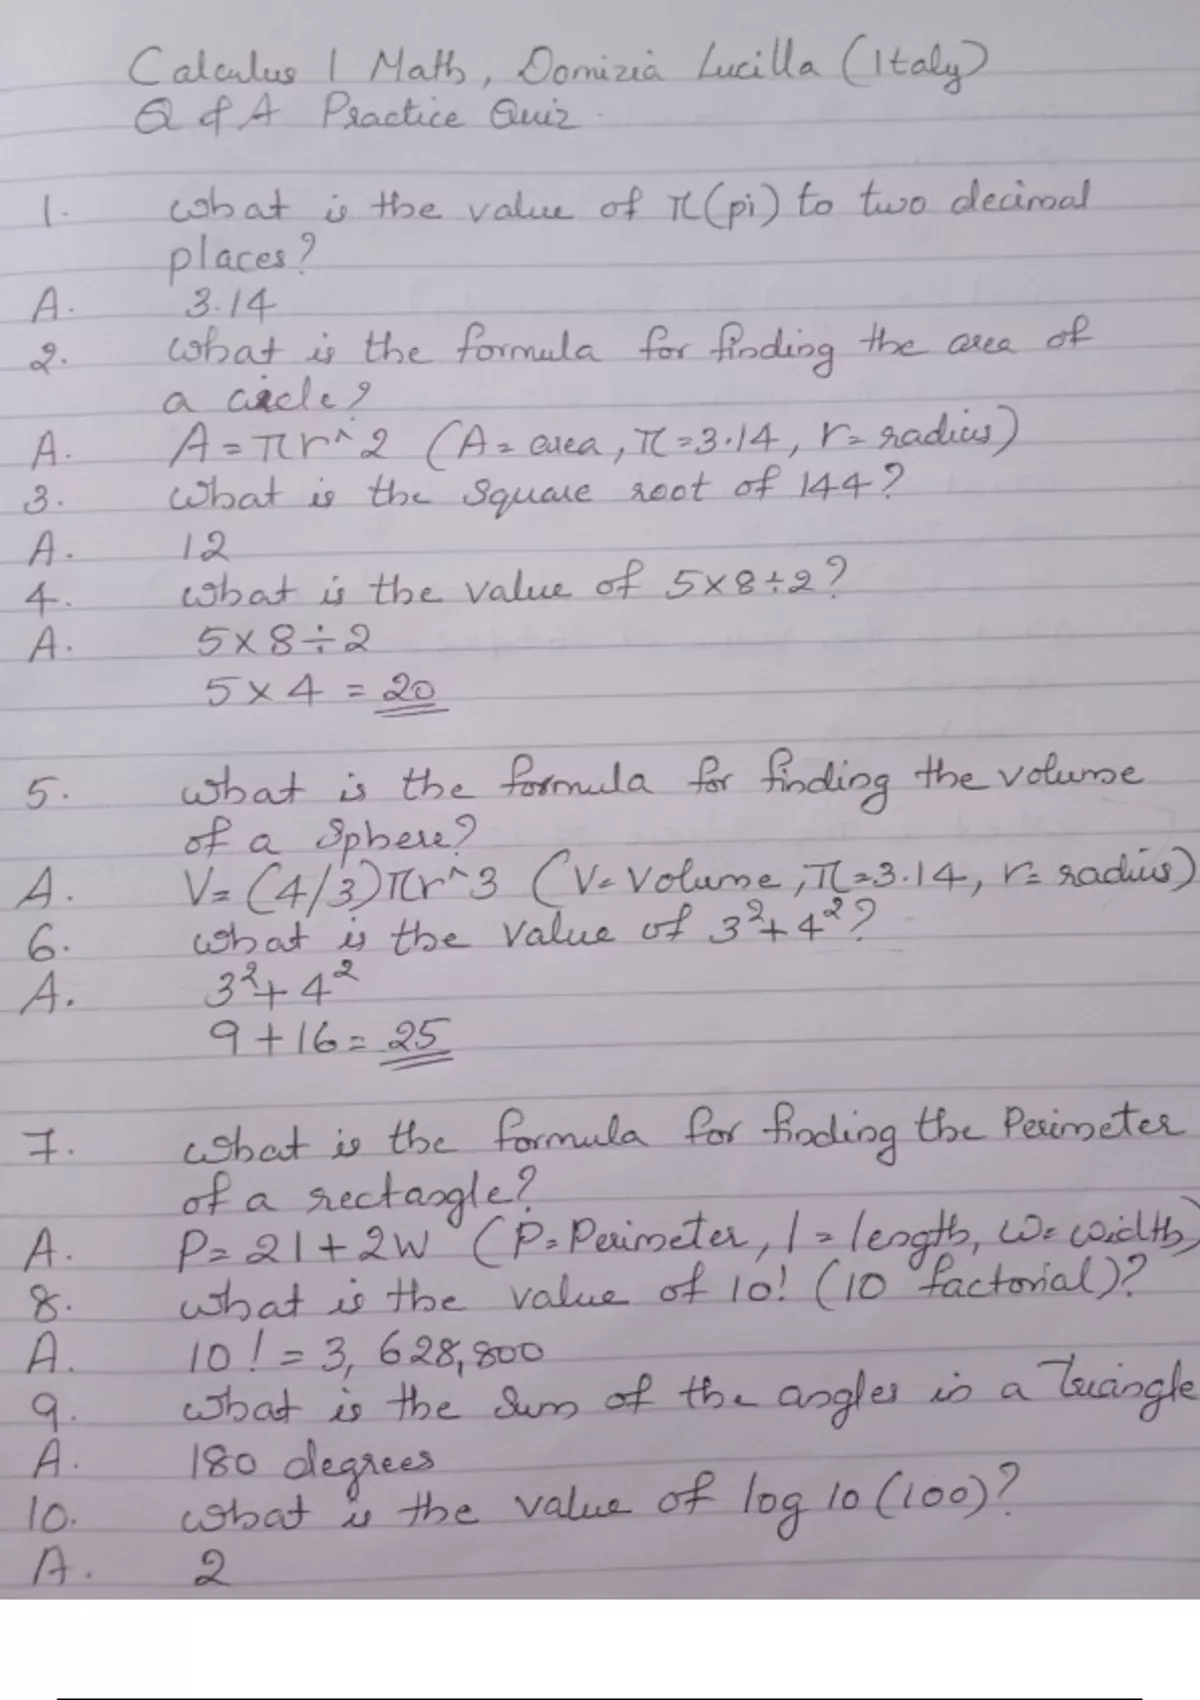 Calculus 1 Math, Domizia Lucilla (Italy)
Q & A Practice Quiz.
1. What is the value of π(pi) to two decimal
places?
A. 3.14
2. What is the formula for finding the area of
a circle?
A. A=πr^2 (A= area, π=3.14, r= radius)
3. What is the Square root of 144?
A. 12
4. What is the value of 5×8÷2?
A. 5×8÷2
5×4 = 20
5. What is the formula for finding the volume
of a Sphere?
A. V= (4/3)πr^3 (V= Volume, π=3.14, r= radius)
6. What is the Value of 3²+4²?
A. 3²+4²
9+16= 25
7. What is the formula for finding the Perimeter
of a rectangle?
A. P= 2l+2W (P= Perimeter, l= length, W= Width)
8. What is the value of 10! (10 factorial)?
A. 10! = 3, 628,800
9. What is the Sum of the angles in a Triangle
A. 180 degrees
10. What is the value of log 10 (100)?
A. 2